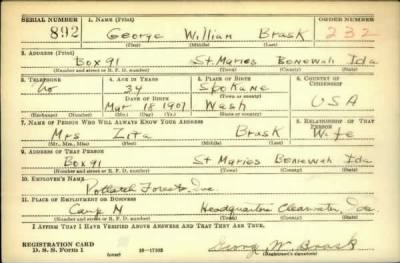 SERIAL NUMBER 1. NAME (Print) ORDER NUMBER
892 George William Brask 232
(First) (Middle) (Last)
2. ADDRESS (Print)
Box 91 St. Maries Benewah Ida
(Number and street or R. F. D. number) (Town) (County) (State)
3. TELEPHONE 4. AGE IN YEARS 5. PLACE OF BIRTH 6. COUNTRY OF CITIZENSHIP
No 34 Spokane
DATE OF BIRTH (Town or county)
Mar 18 1907 Wash USA
(Exchange) (Number) (Mo.) (Day) (Yr.) (State or country)
7. NAME OF PERSON WHO WILL ALWAYS KNOW YOUR ADDRESS 8. RELATIONSHIP OF THAT PERSON
Mrs Zita Brask Wife
(Mr., Mrs., Miss) (First) (Middle) (Last)
9. ADDRESS OF THAT PERSON
Box 91 St Maries Benewah Ida
(Number and street or R. F. D. number) (Town) (County) (State)
10. EMPLOYER'S NAME
Potlatch Forests Inc.
11. PLACE OF EMPLOYMENT OR BUSINESS
Camp N Headquarters Clearwater Ida
(Number and street or R. F. D. number) (Town) (County) (State)
I AFFIRM THAT I HAVE VERIFIED ABOVE ANSWERS AND THAT THEY ARE TRUE.
REGISTRATION CARD
D. S. S. Form 1 (over) 16—17105 George W. Brask
(Registrant's signature)